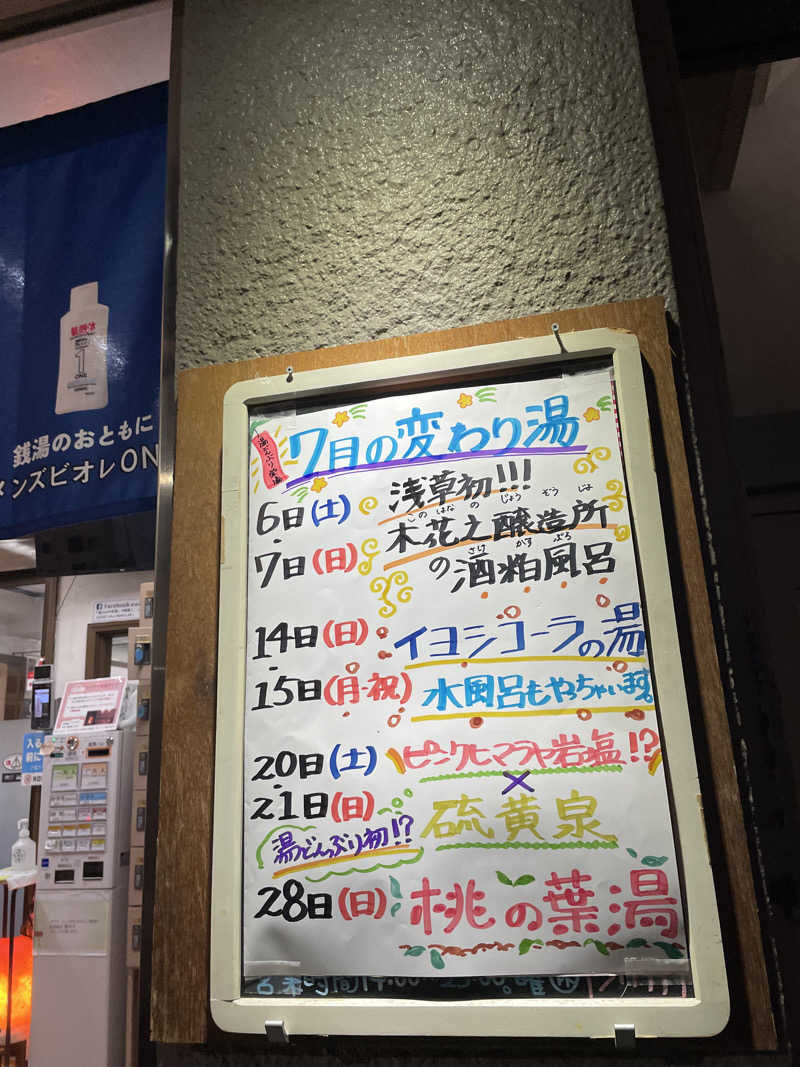 銭湯のおともに
メンズビオレON
湯どんぶり栄湯
7月の変わり湯
6日(土)
・
7日(日)
浅草初!!!
このはなのじょうぞうじょ
木花之醸造所
さけかすぶろ
の酒粕風呂
14日(日)
・
15日(月・祝)
イヨシコーラの湯
水風呂もやっちゃいます。
20日(土)
・
21日(日)
湯どんぶり初!?
ピンクヒマラヤ岩塩!?
×
硫黄泉
28日(日)
桃の葉湯
Facebook
ONE